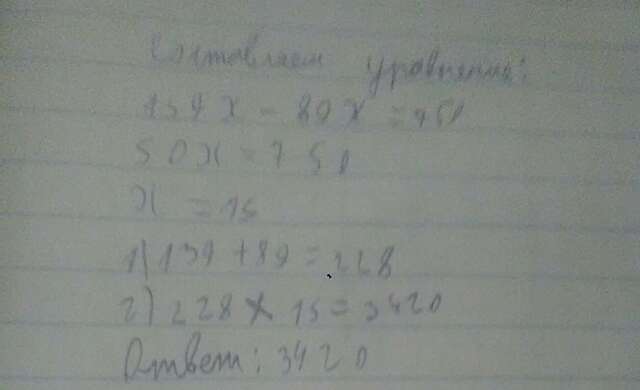 Составляем уравнение:
139x - 89x = 750
50x = 750
x = 15
1) 139 + 89 = 228
2) 228 x 15 = 3420
Ответ: 3420